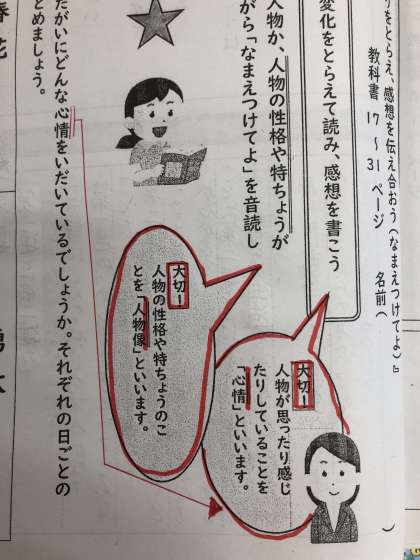 をとらえ、感想を伝え合おう(なまえつけてよ)』
教科書 17〜31ページ 名前(
)
変化をとらえて読み、感想を書こう
人物か、人物の性格や特ちょうが
がら「なまえつけてよ」を音読し
大切!
人物が思ったり感じ
たりしていることを
「心情」といいます。
大切!
人物の性格や特ちょうのこ
とを「人物像」といいます。
たがいにどんな心情をいだいているでしょうか。それぞれの日ごとの
とめましょう。
春花